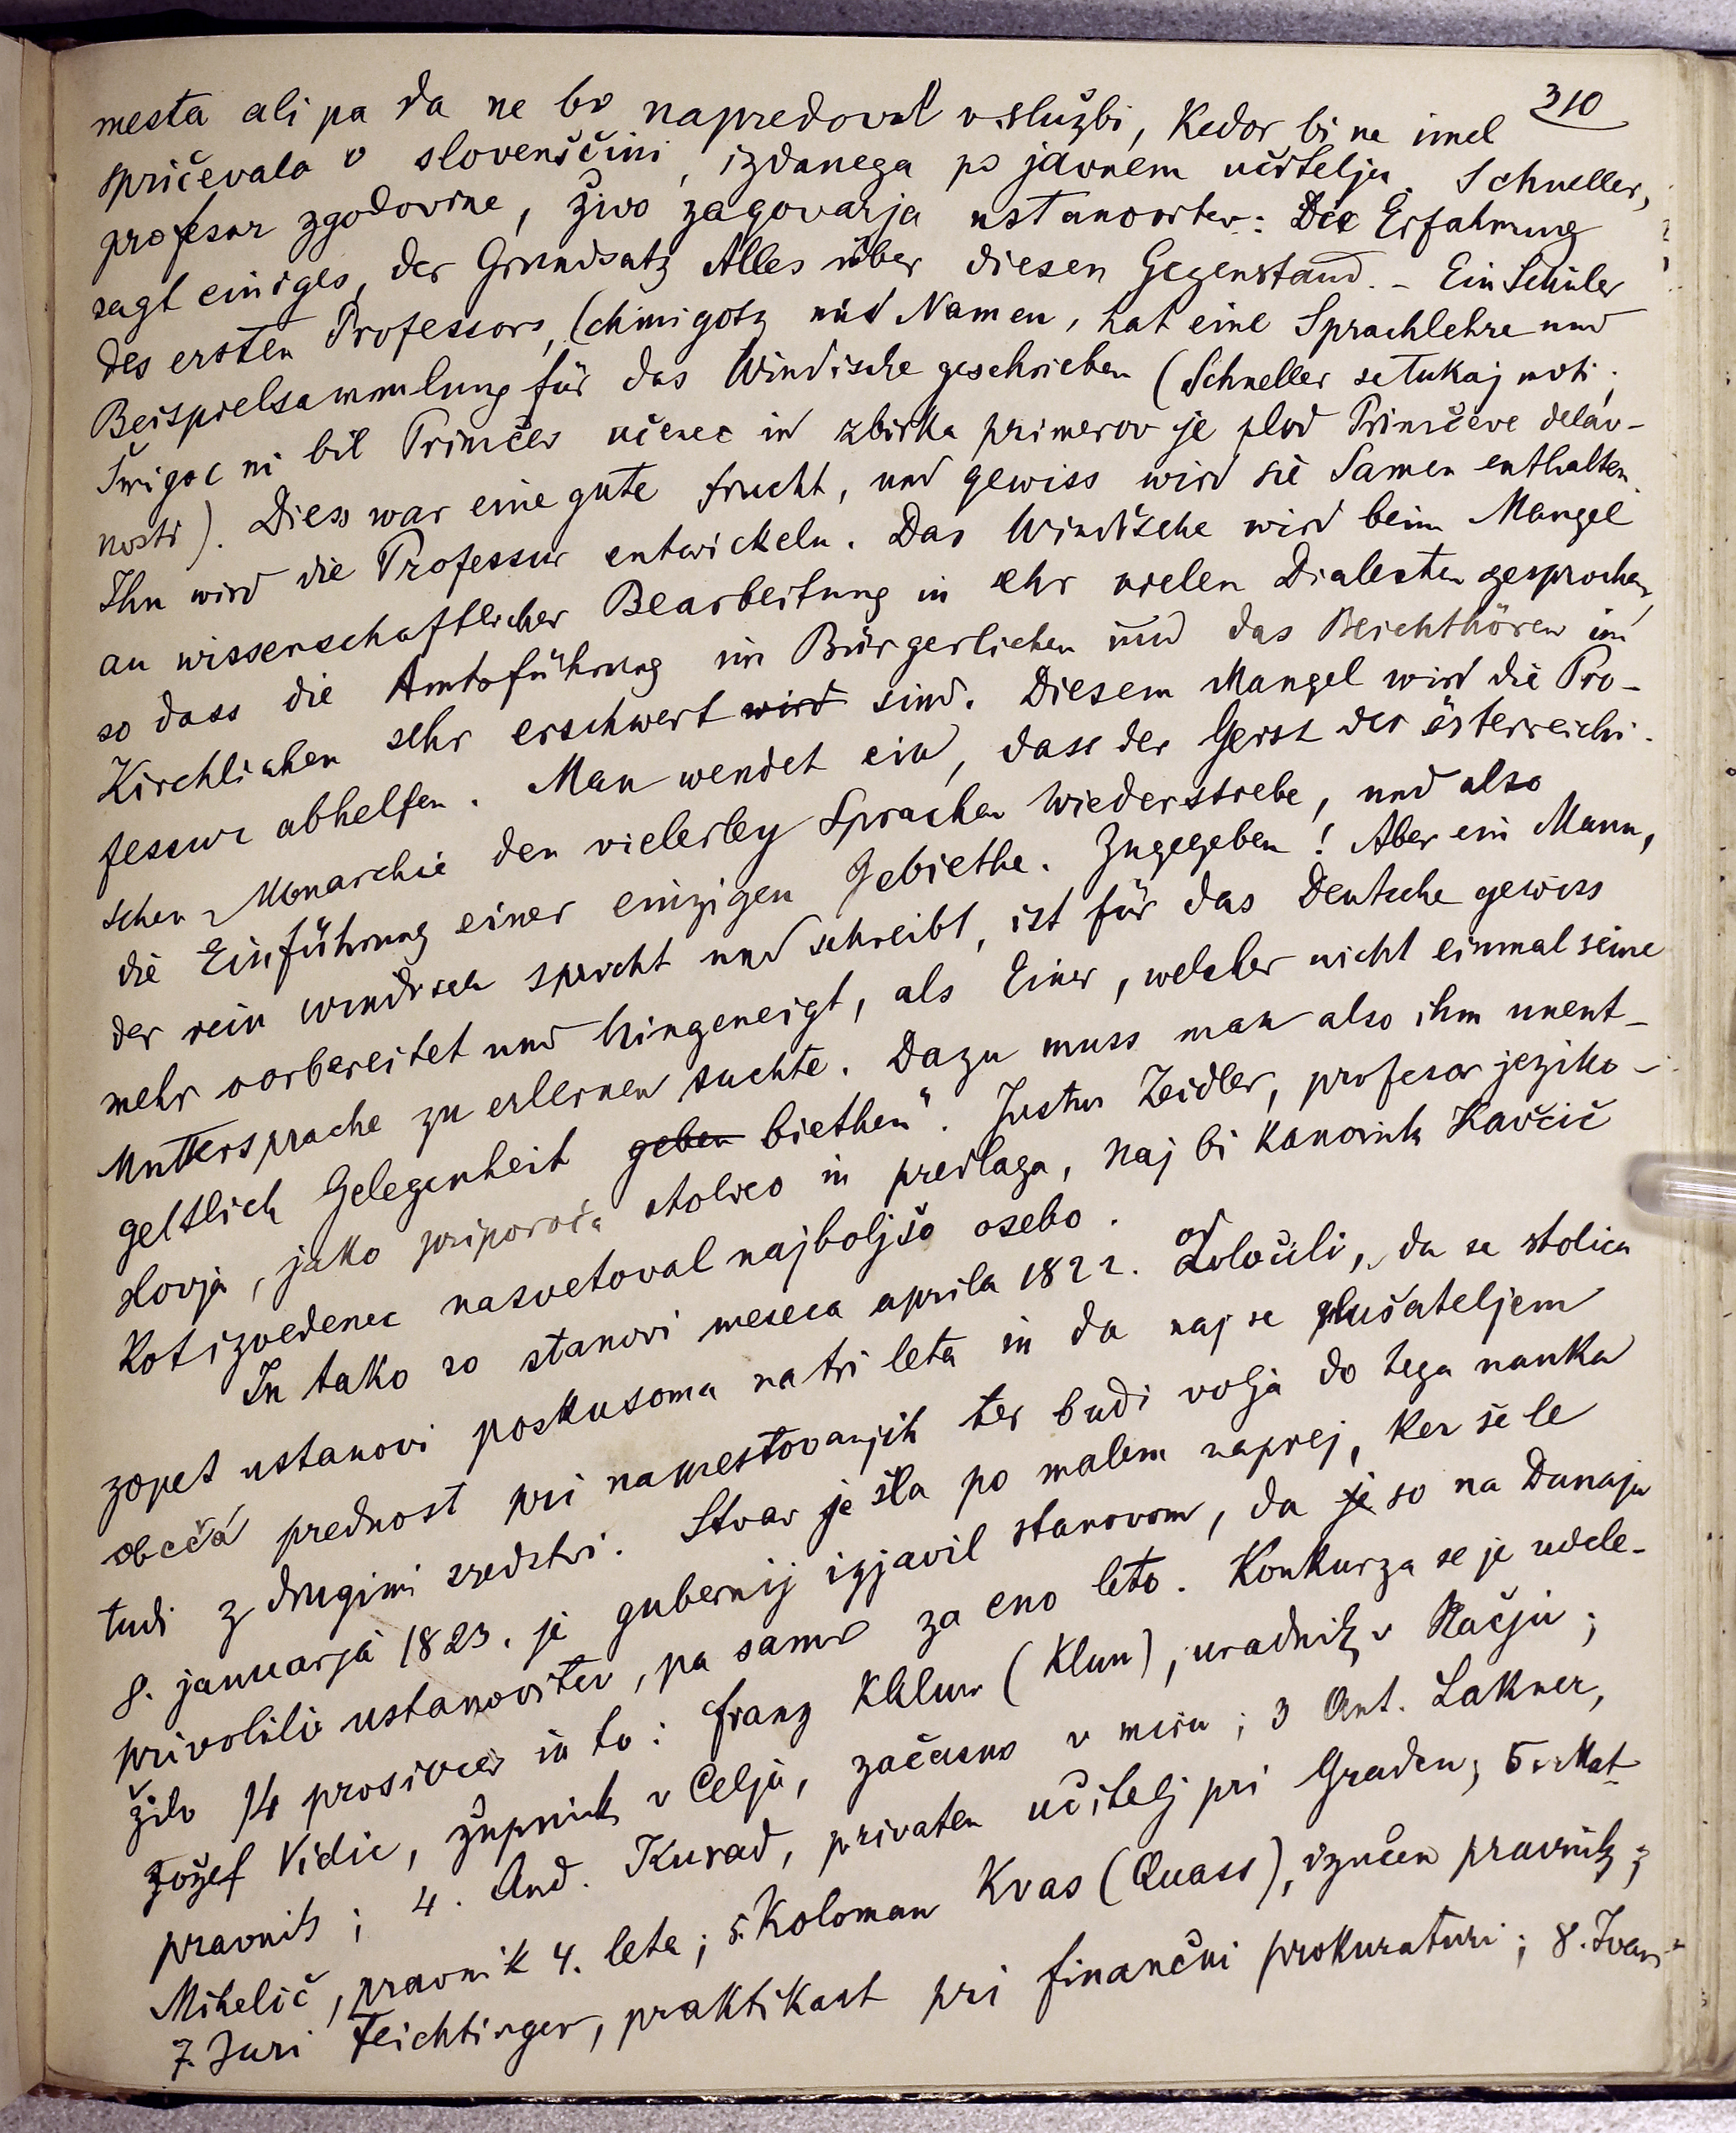 310
mesta ali pa da ne bo napredoval v službi, kedor bi ne imel
spričevala o slovenščini, izdanega po javnem učitelju. Schneller,
profesor zgodovine, živo zagovarja ustanovitev: Die Erfahrung
sagt einiges, der Grundsatz Alles über diesen Gegenstand. – Ein Schüler
des ersten Professors, Schmigotz mit Namen, hat eine Sprachlehre und
Beispielsammlung für das Windische geschrieben (Schneller se tukaj moti;
Šmigoc ni bil Primčev učenec in zbirka primerov je plod Primčeve delav-
nosti). Diess war eine gute Frucht, und gewiss wird sie Samen enthalten.
Ihn wird die Professur entwickeln. Das Windische wird beim Mangel
an wissenschaftlicher Bearbeitung in sehr vielen Dialecten gesprochen,
so dass die Amtsführung im Bürgerlichen und das Beichthören im
Kirchlichen sehr erschwert wird sind. Diesem Mangel wird die Pro-
fessur abhelfen. Man wendet ein, dass der Geist der österreichi-
schen Monarchie den vielerley Sprachen wiederstrebe, und also
die Einführung einer einzigen gebiethe. Zugegeben! Aber ein Mann,
der rein windisch spricht und schreibt, ist für das Deutsche gewiss
mehr vorbereitet und hingeneigt, als Einer, welcher nicht einmal seine
Muttersprache zu erlernen suchte. Dazu muss man also ihm unent-
geltlich Gelegenheit geben biethen“. Justus Zeidler, profesor jeziko-
slovja, jako priporoča stolico in predlaga, naj bi kanonik Kavčič
kot izvedenec nasvetoval najboljšo osebo.
In tako so stanovi meseca aprila 1822. odločili, da se stolica
zopet ustanovi poskusoma na tri leta in da naj se slušateljem
obeča prednost pri namestovanjih ter budi volja do tega nauka
tudi z drugimi sredstvi. Stvar je šla po malem naprej, ker še le
8. januarja 1823. je gubernij izjavil stanovom, da je so na Dunaju
privolili ustanovitev, pa samo za eno leto. Konkurza se je udele-
žilo 14 prosivcev in to: Franz Khlun (Klun), uradnik v Račju;
Jožef Vidic, župnik v Celju, začasno v miru; 3 Ant. Lakner,
pravnik; 4. And. Kurad, privaten učitelj pri Gradcu; 5. Mat.
Mihelič, pravnik 4. leta; 5. Koloman Kvas (Quass), izučen pravnik;
7. Juri Feichtinger, praktikant pri finančni prokuraturi; 8. Ivan